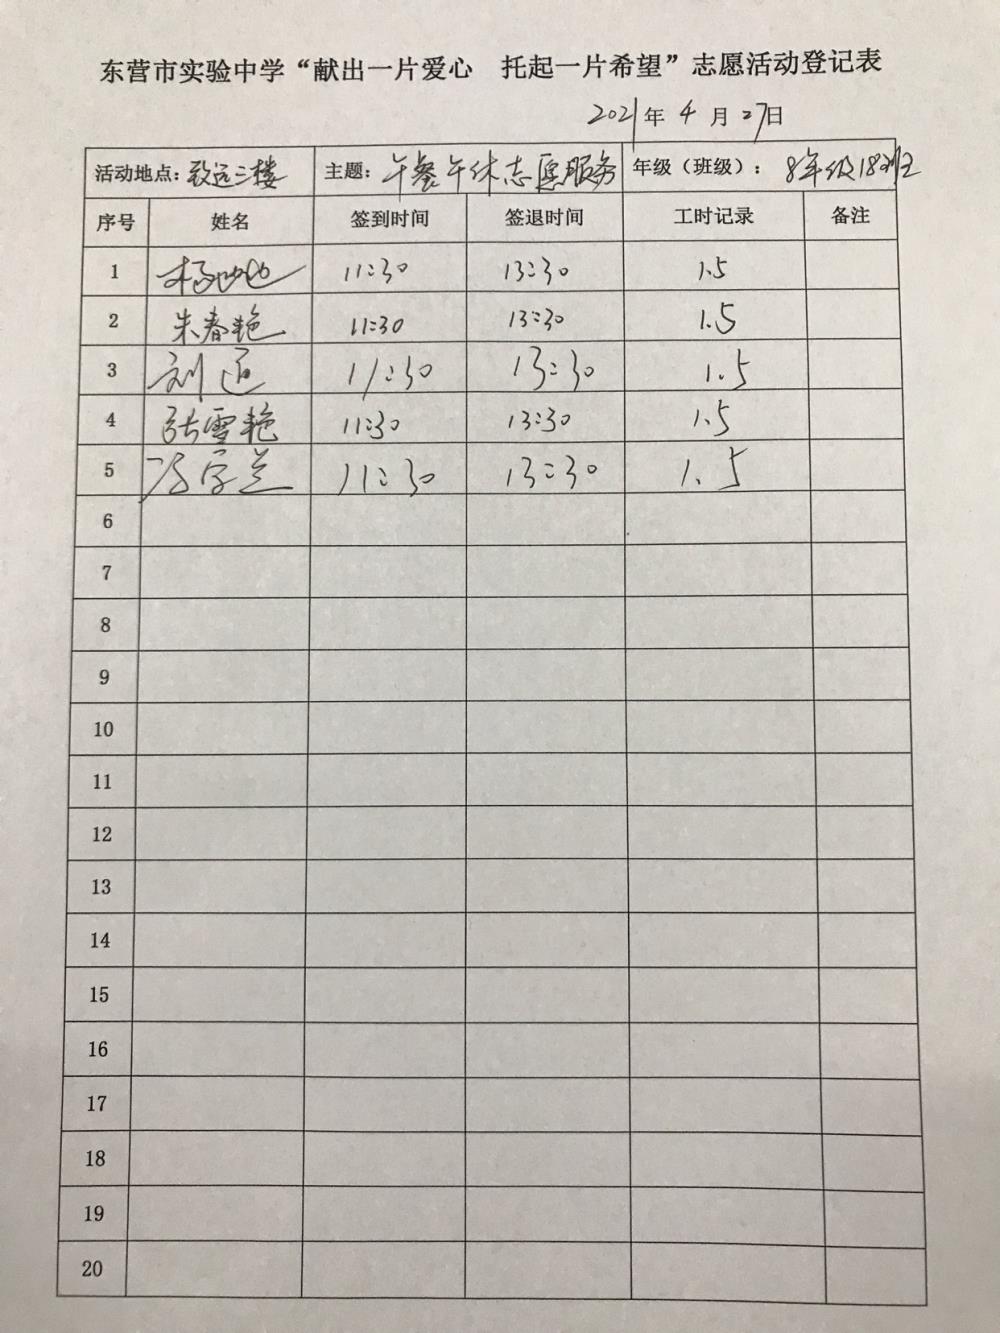 东营市实验中学“献出一片爱心 托起一片希望”志愿活动登记表
2021年4月27日
活动地点：致远三楼 主题：午餐午休志愿服务 年级（班级）：8年级18班
序号 姓名 签到时间 签退时间 工时记录 备注
1 11:30 13:30 1.5
2 朱春艳 11:30 13:30 1.5
3 刘 11:30 13:30 1.5
4 张雪艳 11:30 13:30 1.5
5 11:30 13:30 1.5
6
7
8
9
10
11
12
13
14
15
16
17
18
19
20